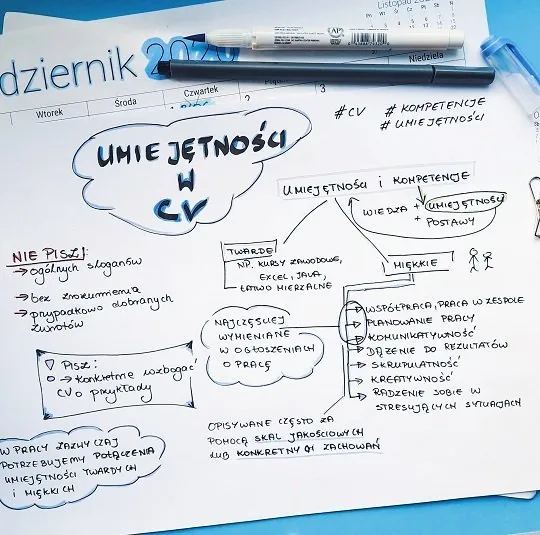 Listopad 20
Niedziela
dziernik 2020
Wtorek
Środa
Czwartek
2
3
AP
#CV
#KOMPETENCJE
#UMIEJĘTNOŚCI
UMIEJĘTNOŚCI
W
CV
UMIEJĘTNOŚCI i KOMPETENCJE
WIEDZA + UMIEJĘTNOŚCI
+ POSTAWY
NIE PISZ!:
→ ogólnych sloganów
→ bez zrozumienia
→ przypadkowo dobranych
zwrotów
TWARDE
NP. KURSY ZAWODOWE,
EXCEL, JAVA,
ŁATWO MIERZALNE
MIĘKKIE
NAJCZĘŚCIEJ
WYMIENIANE
W OGŁOSZENIACH
O PRACĘ
→ WSPÓŁPRACA, PRACA W ZESPOLE
→ PLANOWANIE PRACY
→ KOMUNIKATYWNOŚĆ
→ DĄŻENIE DO REZULTATÓW
→ SKRUPULATNOŚĆ
→ KREATYWNOŚĆ
→ RADZENIE SOBIE W
STRESUJĄCYCH SYTUACJACH
PISZ:
→ konkretnie wzbogać
CV o przykłady
OPISYWANE CZĘSTO ZA
POMOCĄ SKAL JAKOŚCIOWYCH
LUB KONKRETNYCH ZACHOWAŃ
W PRACY ZAZWYCZAJ
POTRZEBUJEMY POŁĄCZENIA
UMIEJĘTNOŚCI TWARDYCH
i MIĘKKICH